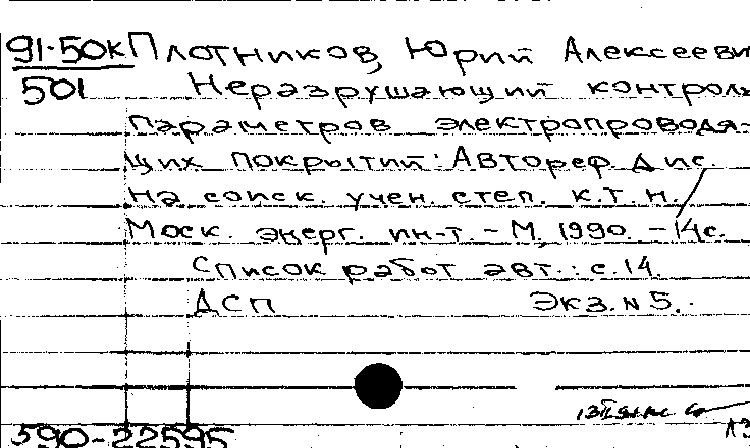 91-50к Плотников, Юрий Алексееви
501 Неразрушающий контроль
параметров электропроводя-
щих покрытий: Автореф. дис.
на соиск. учен. степ. к.т.н./
Моск. энерг. ин-т. - М, 1990. - 14с.
Список работ авт.: с.14.
ДСП Экз. N 5.
590-22595